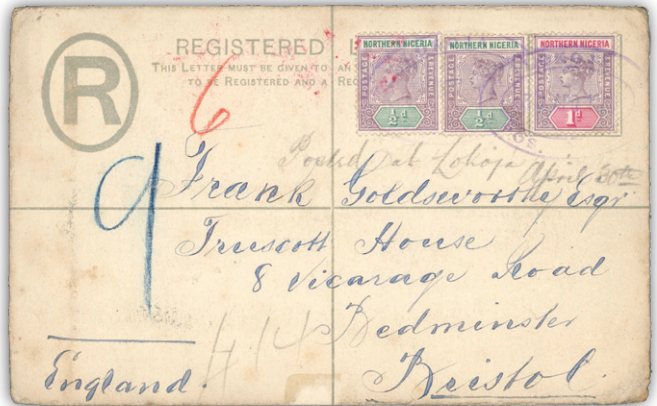 REGISTERED
THIS LETTER MUST BE GIVEN TO AN
TO BE REGISTERED AND A REC
R
NORTHERN NIGERIA
POSTAGE
REVENUE
½d
NORTHERN NIGERIA
POSTAGE
REVENUE
½d
NORTHERN NIGERIA
POSTAGE
REVENUE
1d
6
9
Posted at Lokoja
April 30th
Frank Goldsworthy Esqr
Truscott House
8 Vicarage Road
Bedminster
Bristol.
England.
414